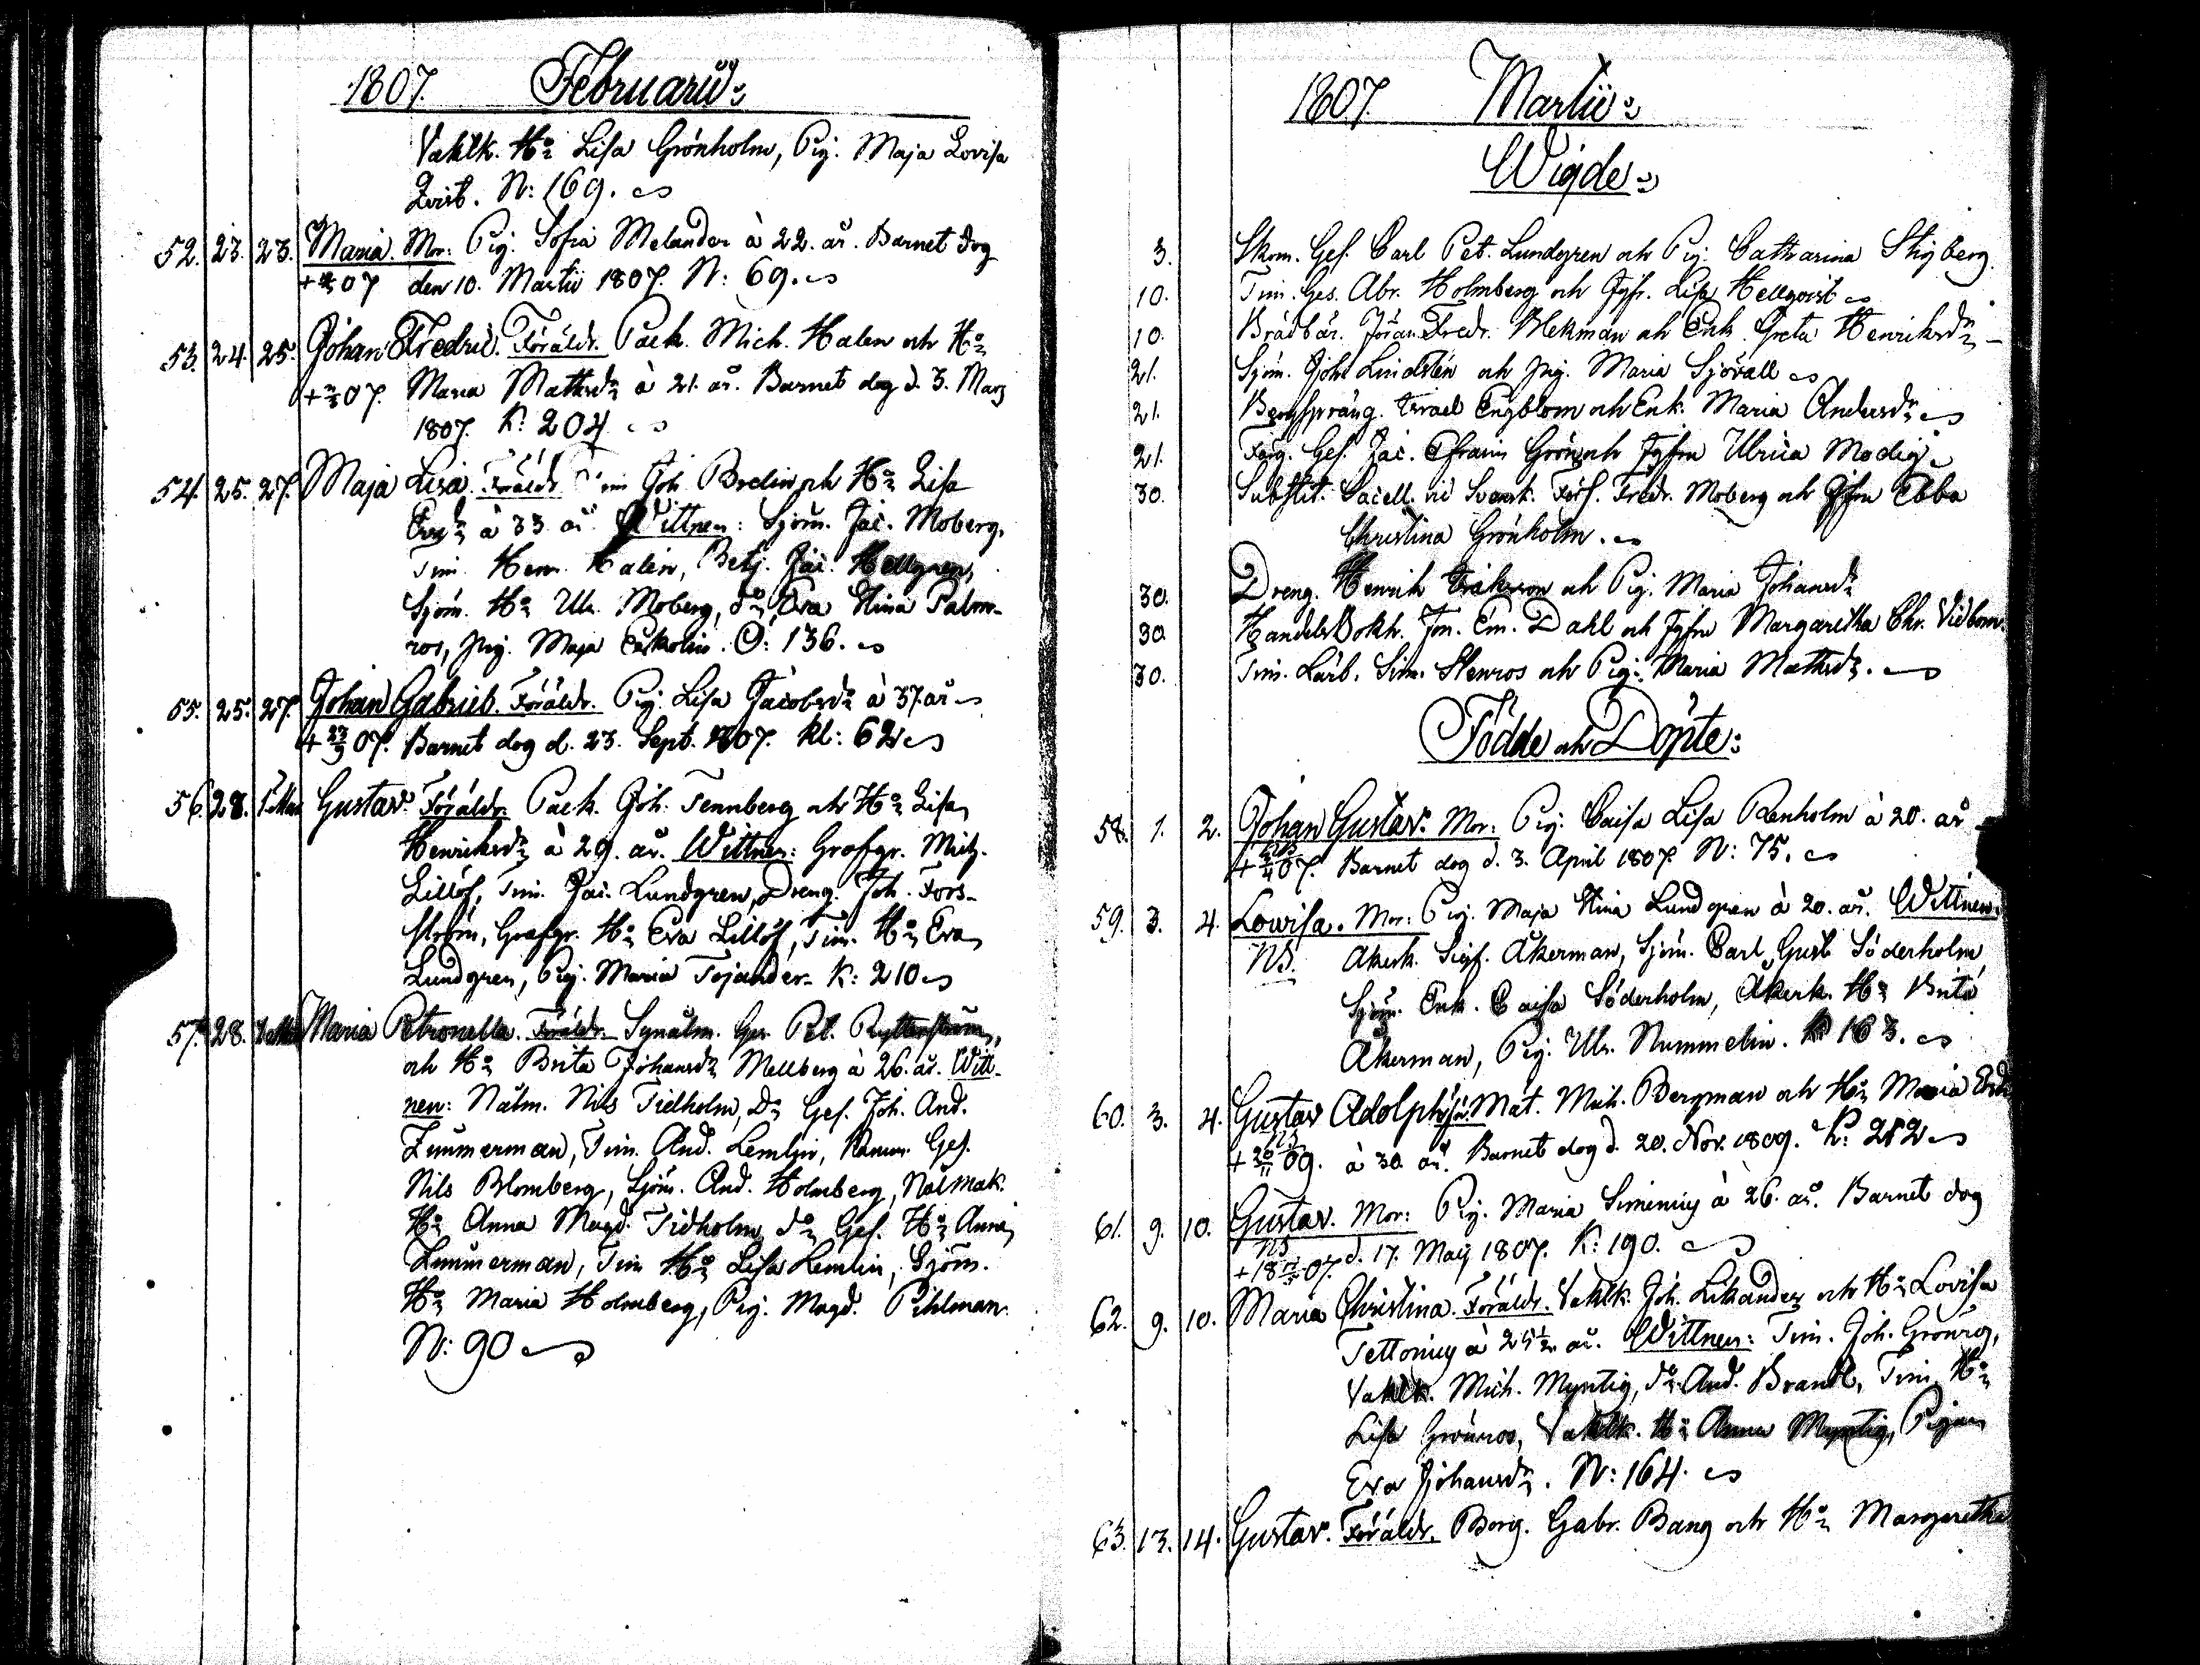 1807. Februarii
Vaktk. Ho Lisa Grönholm, Pig. Maja Lovisa
Qvist. N: 169.
52. 23. 23. Maria. Mor: Pig. Sofia Melander à 22. år. Barnet dog
+ 07 den 10. Martii 1807. N: 69.
53. 24. 25. Johan Fredric. Föräldr. Pack. Mich. Halen och Ho
+ 3/3 07. Maria Mattsdr à 21. år. Barnet dog d. 3. Marz
1807. K: 204
54. 25. 27. Maja Lisa. Föräldr. Tim Joh. Bredin och Ho Lisa
à 33 år. Wittnen: Sjöm. Jac. Moberg,
Tim. Henr. Halin, Betj. Jac. Hellgren,
Sjöm. Ho Ulr. Moberg, do Eva Stina Palm-
ros, Pig. Maja Ekholm. O: 136.
55. 25. 27. Johan Gabriel. Föräldr. Pig. Lisa Jacobsdr à 37. år
+ 23/9 07. Barnet dog d. 23. Sept. 1807. Kl: 62
56. 28. 1 Mar Gustav. Föräldr. Pack. Joh. Tennberg och Ho Lisa
Henriksdr à 29. år. Wittnen: Grafgr. Mich.
Lillöf, Tim. Jac. Lundgren, Dreng. Joh. Fors-
ström, Grafgr. Ho Eva Lillöf, Tim. Ho Eva
Lundgren, Pig. Maria Tojander. K: 210
57. 28. Maria Petronella. Föräldr. Synålm. Ges. Pet. Rytterström,
och Ho Brita Johansdr Mellberg à 26. år. Witt-
nen: Nålm. Nils Tidholm, Do Ges. Joh. And.
Zimmerman, Tim. And. Lemlin, Ges.
Nils Blomberg, Sjöm. And. Holmberg, Nålmak.
Ho Anna Magd. Tidholm do Ges. Ho Anna
Zimmerman, Tim Ho Lisa Lemlin, Sjöm.
Ho Maria Holmberg, Pig. Magd. Pihlman.
N: 90
1807. Martii
Wigde
3. Skom. Ges. Carl Pet. Lundgren och Pig. Catharina Stigberg
10. Tim. Ges. Abr. Holmberg och Jgfr. Lisa Hellqvist
10. Brädbär. Jöran Fredr. Blekman och Enk. Greta Henriksdr
21. Sjöm. Joh. Lindsten och Pig. Maria Sjövall
21. Bergspräng. Israel Engblom och Enk. Maria Andersdr
21. Färg. Ges. Jac. Efraim Grön och Jgfru Ulrica Modig
30. Substit. Sacell. vid Svensk. Förs. Fredr. Moberg och Jgfru Ebba
Christina Grönholm.
30. Dreng. Henrik Eriksson och Pig. Maria Johansdr
30 Handels Bokh. Jon. Em. Dahl och Jgfru Margaretha Chr. Vidbom.
30. Tim. Lärb. Sim. Stenros och Pig. Maria Mattsdr.
Födde och Döpte:
58. 1. 2. Johan Gustav. Mor: Pig. Caisa Lisa Renholm à 20. år
+ 3/4 07. Barnet dog d. 3. April 1807. N: 75.
59. 3. 4. Lowisa. Mor: Pig. Maja Stina Lundgren à 20. år. Wittnen:
NB. Åkerk. Sigf. Åkerman, Sjöm. Carl Gust. Söderholm
Sjöm. Enk. Caisa Söderholm, Åkerk. Ho Brita
Åkerman, Pig. Ulr. Nummelin. K 163.
60. 3. 4. Gustav Adolph. Mat. Mich. Bergman och Ho Maria
+ 20/11 09. à 30. år. Barnet dog d. 20. Nov. 1809. K: 212
61. 9. 10. Gustav. Mor: Pig. Maria Simenius à 26. år. Barnet dog
NB + 18 17/5 07. d. 17. Maij 1807. K: 190.
62. 9. 10. Maria Christina. Föräldr. Vaktk. Joh. Likander och Ho Lovisa
Tettonius à 25 1/2 år. Wittnen: Tim. Joh. Grönros,
Vaktk. Mich. Myntig, do And. Brandt, Tim. Ho
Lisa Grönros, Vaktk. Ho Anna Myntig, Pigan
Eva Johansdr. N: 164.
63. 13. 14. Gustav. Föräldr. Borg. Gabr. Bang och Ho Margaretha